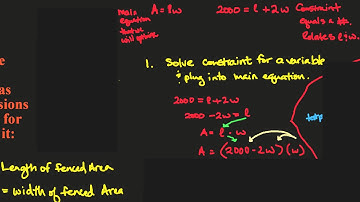 main equation that we will optimize
A = lw
2000 = l + 2w
Constraint
equals a #.
Relates l & w.
1. Solve constraint for a variable
& plug into main equation.
2000 = l + 2w
2000 - 2w = l
A = l · w
A = (2000 - 2w)(w)
e
as
sions
for
it:
Length of fenced Area
= width of fenced Area